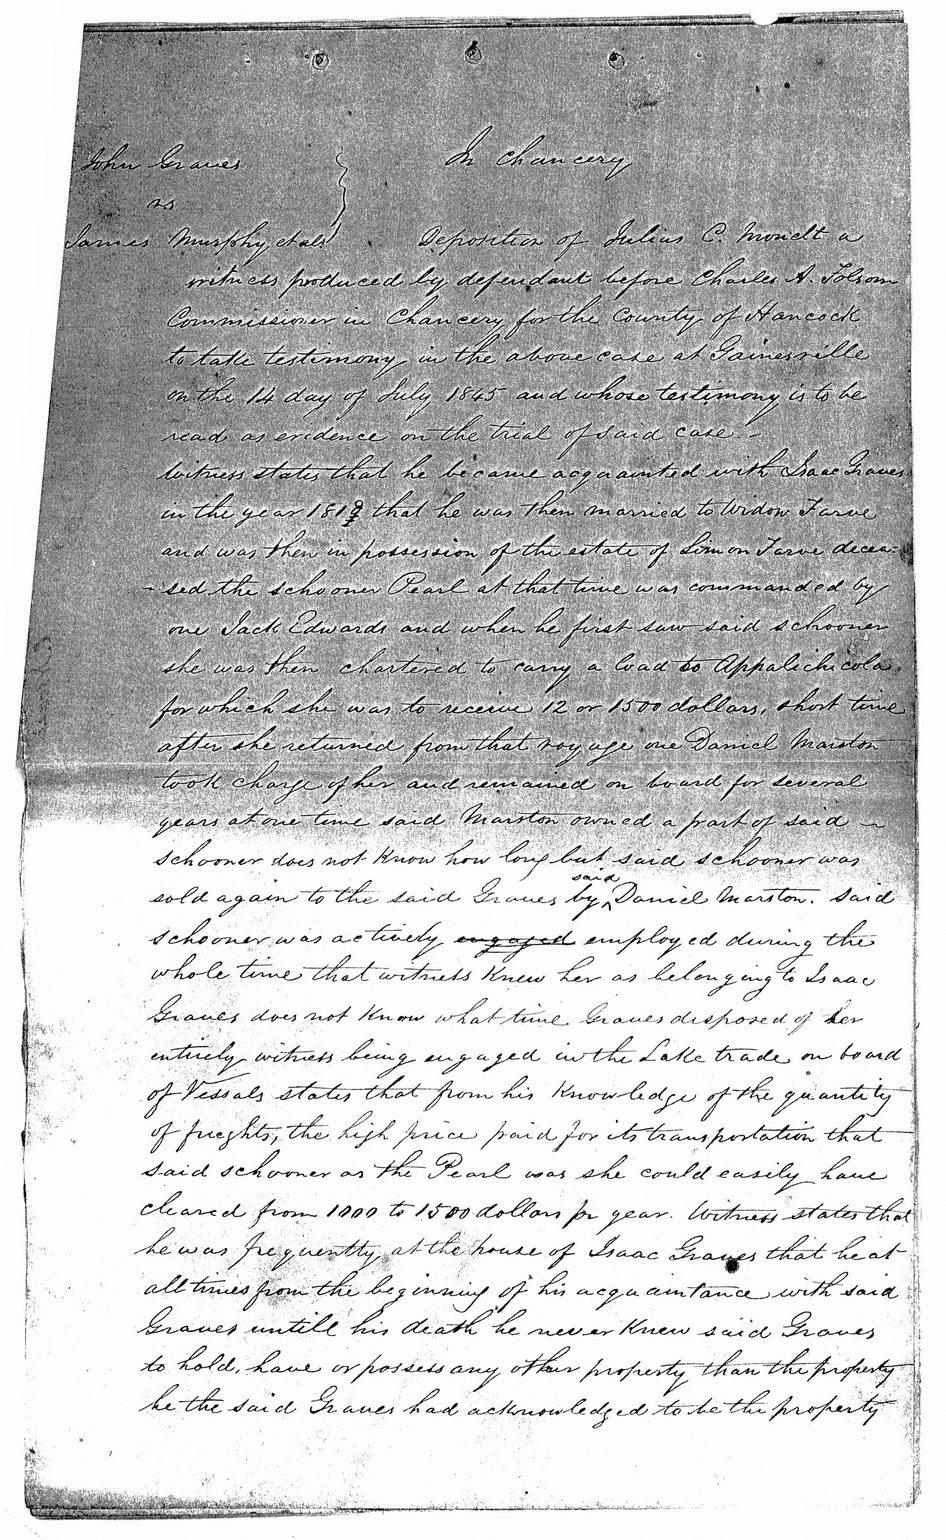 John Graves
vs
James Murphy et als
In Chancery
Deposition of Julius C. Monett a
witness produced by defendant before Charles A. Folsom
Commissioner in Chancery for the County of Hancock
to take testimony in the above case at Gainesville
on the 14 day of July 1845 and whose testimony is to be
read as evidence on the trial of said case. –
Witness states that he became acquainted with Isaac Graves
in the year 1819 that he was then married to Widow Farve
and was then in possession of the estate of Simon Farve decea-
-sed the schooner Pearl at that time was commanded by
one Jack Edwards and when he first saw said schooner
she was then chartered to carry a load to Appalichicola
for which she was to receive 12 or 1500 dollars, short time
after she returned from that voyage one Daniel Marston
took charge of her and remained on board for several
years at one time said Marston owned a part of said –
schooner does not Know how long but said schooner was
sold again to the said Graves by said Daniel Marston. Said
schooner was actively engaged employed during the
whole time that witness Knew her as belonging to Isaac
Graves does not Know what time Graves disposed of her
entirely witness being engaged in the Lake trade on board
of Vessals states that from his Knowledge of the quantity
of freghts, the high price paid for its transportation that
said schooner as the Pearl was she could easily have
cleared from 1000 to 1500 dollars pr year. Witness states that
he was frequently at the house of Isaac Graves that he at
all times from the beginning of his acquaintance with said
Graves untill his death he never Knew said Graves
to hold, have or possess any other property than the property
he the said Graves had acknowledged to be the property